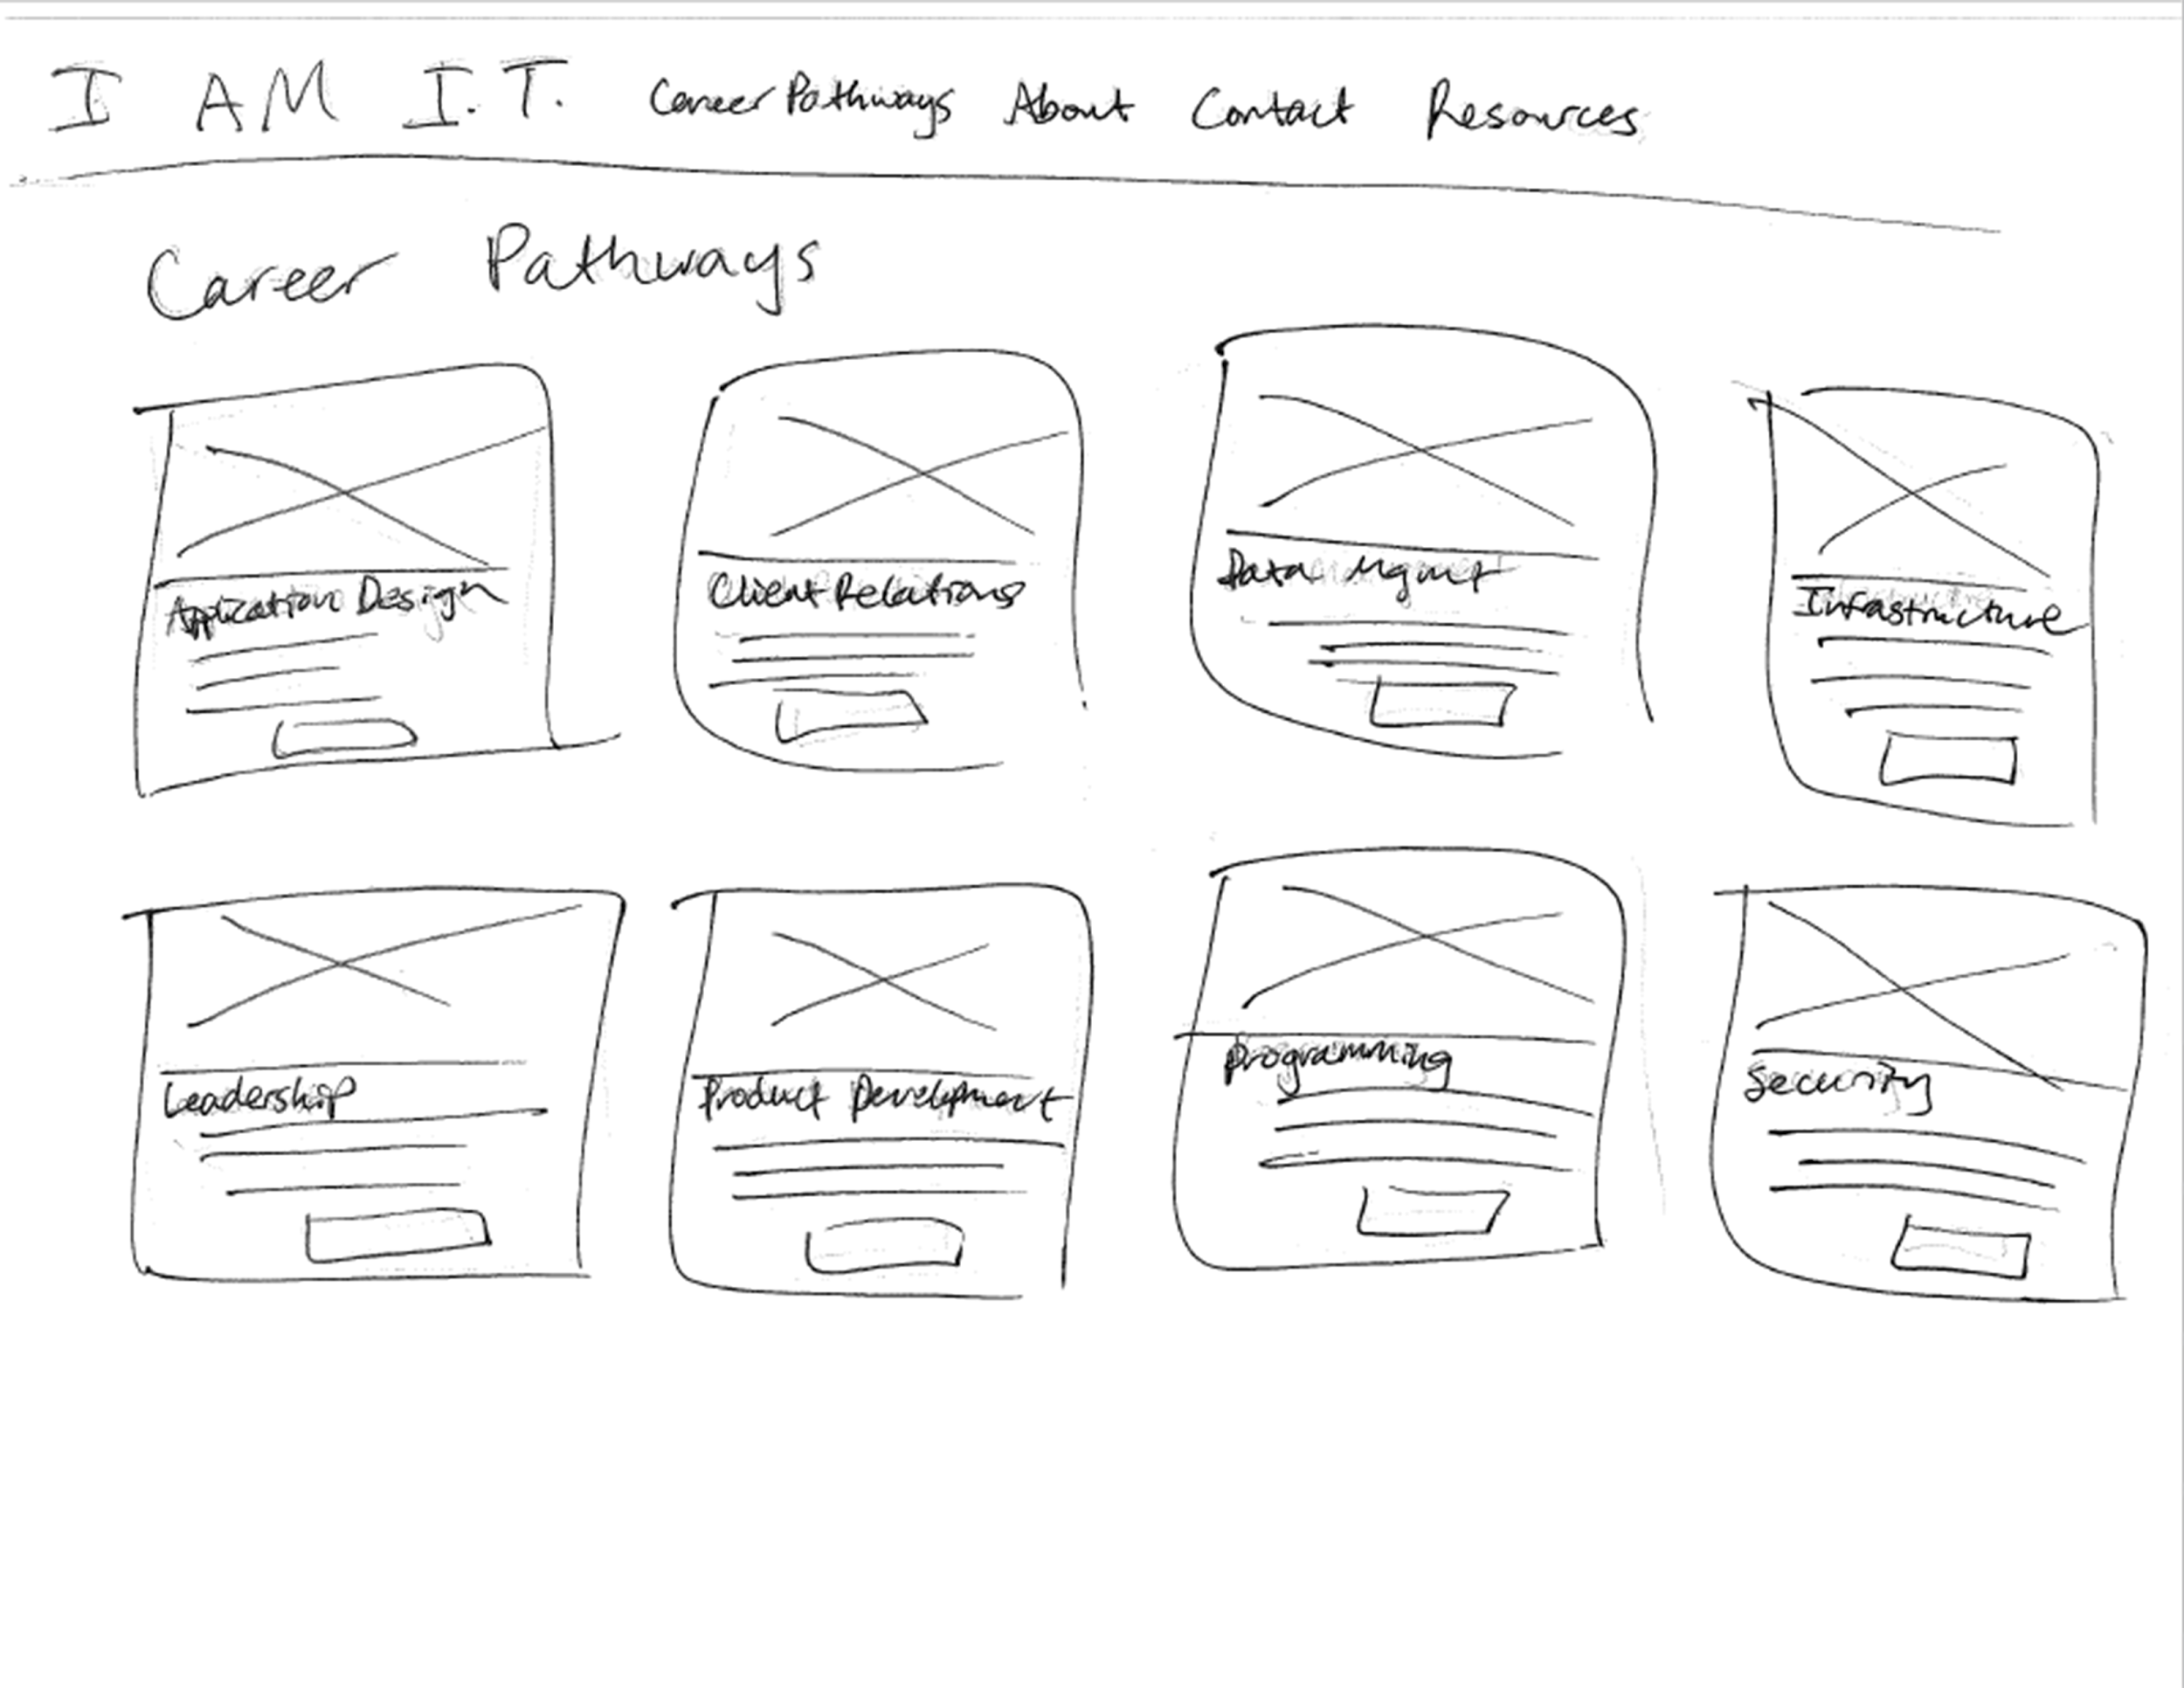 I AM I.T. Career Pathways About Contact Resources
Career Pathways
Application Design
Client Relations
Data Mgmt
Infrastructure
Leadership
Product Development
Programming
Security